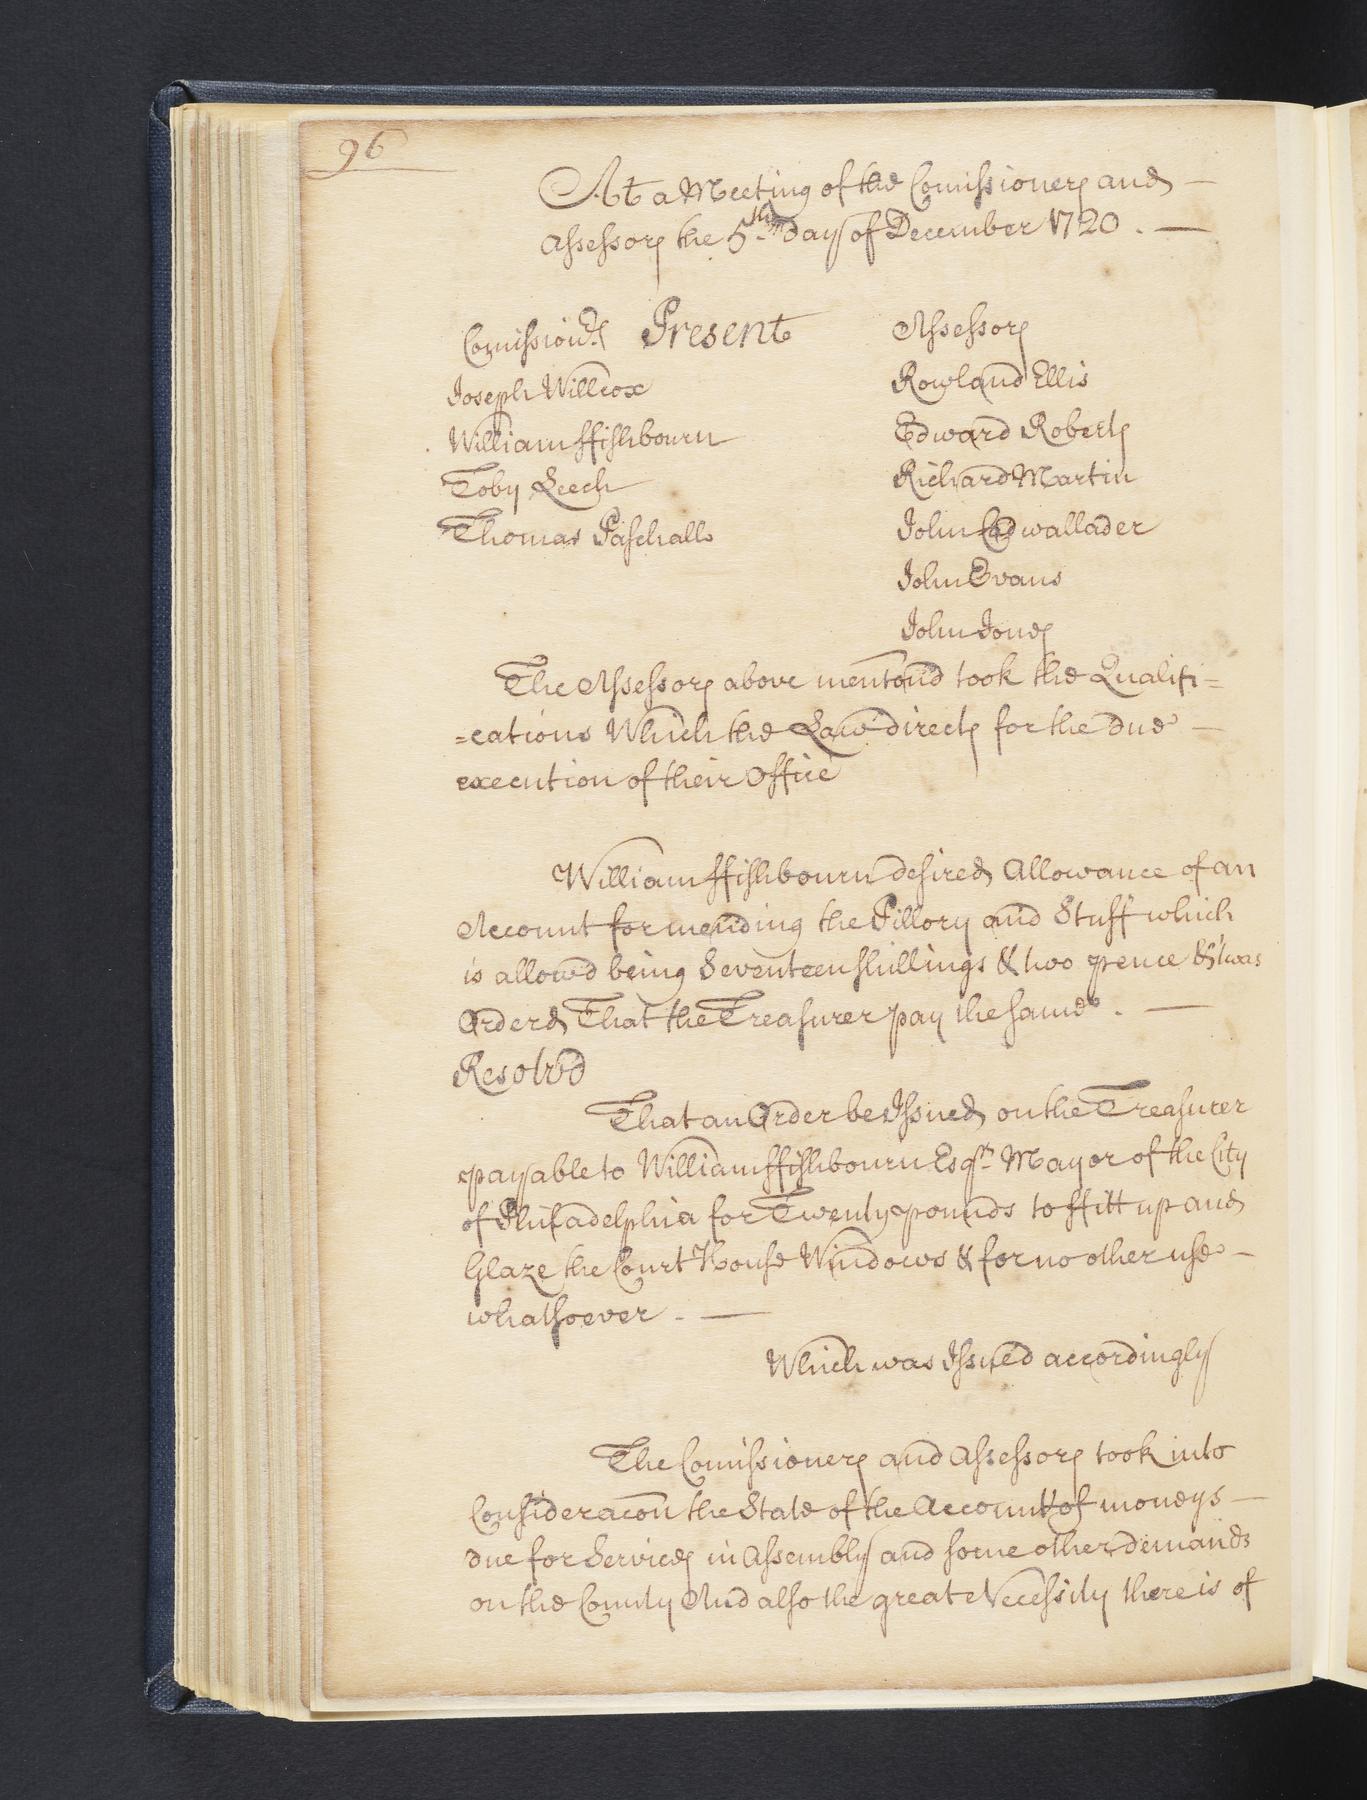 96
At a Meeting of the Comissioners and
Assessors the 5th day of December 1720.
Comission.rs Present
Joseph Willcox
William ffishbourn
Toby Leech
Thomas Paschall
Assessors
Rowland Ellis
Edward Roberts
Richard Martin
John Cadwallader
John Evans
John Jones
The Assessors above mentond took the Qualifi=
=cations Which the Law directs for the due
execution of their Office
William ffishbourn desired Allowance of an
Account for mending the Pillory and Stuff which
is allowd being Seventeen shillings & two pence & 'twas
Orderd That the Treasurer pay the same.
Resolv'd
That an Order be Issued on the Treasurer
payable to William ffishbourn Esqr. Mayor of the City
of Philadelphia for Twenty pounds to ffitt up and
Glaze the Court House Windows & for no other use
whatsoever.
Which was Issued accordingly
The Comissioners and Assessors took into
Consideracon the State of the Account of moneys
due for Services in Assembly and some other demands
on the County And also the great Necessity there is of